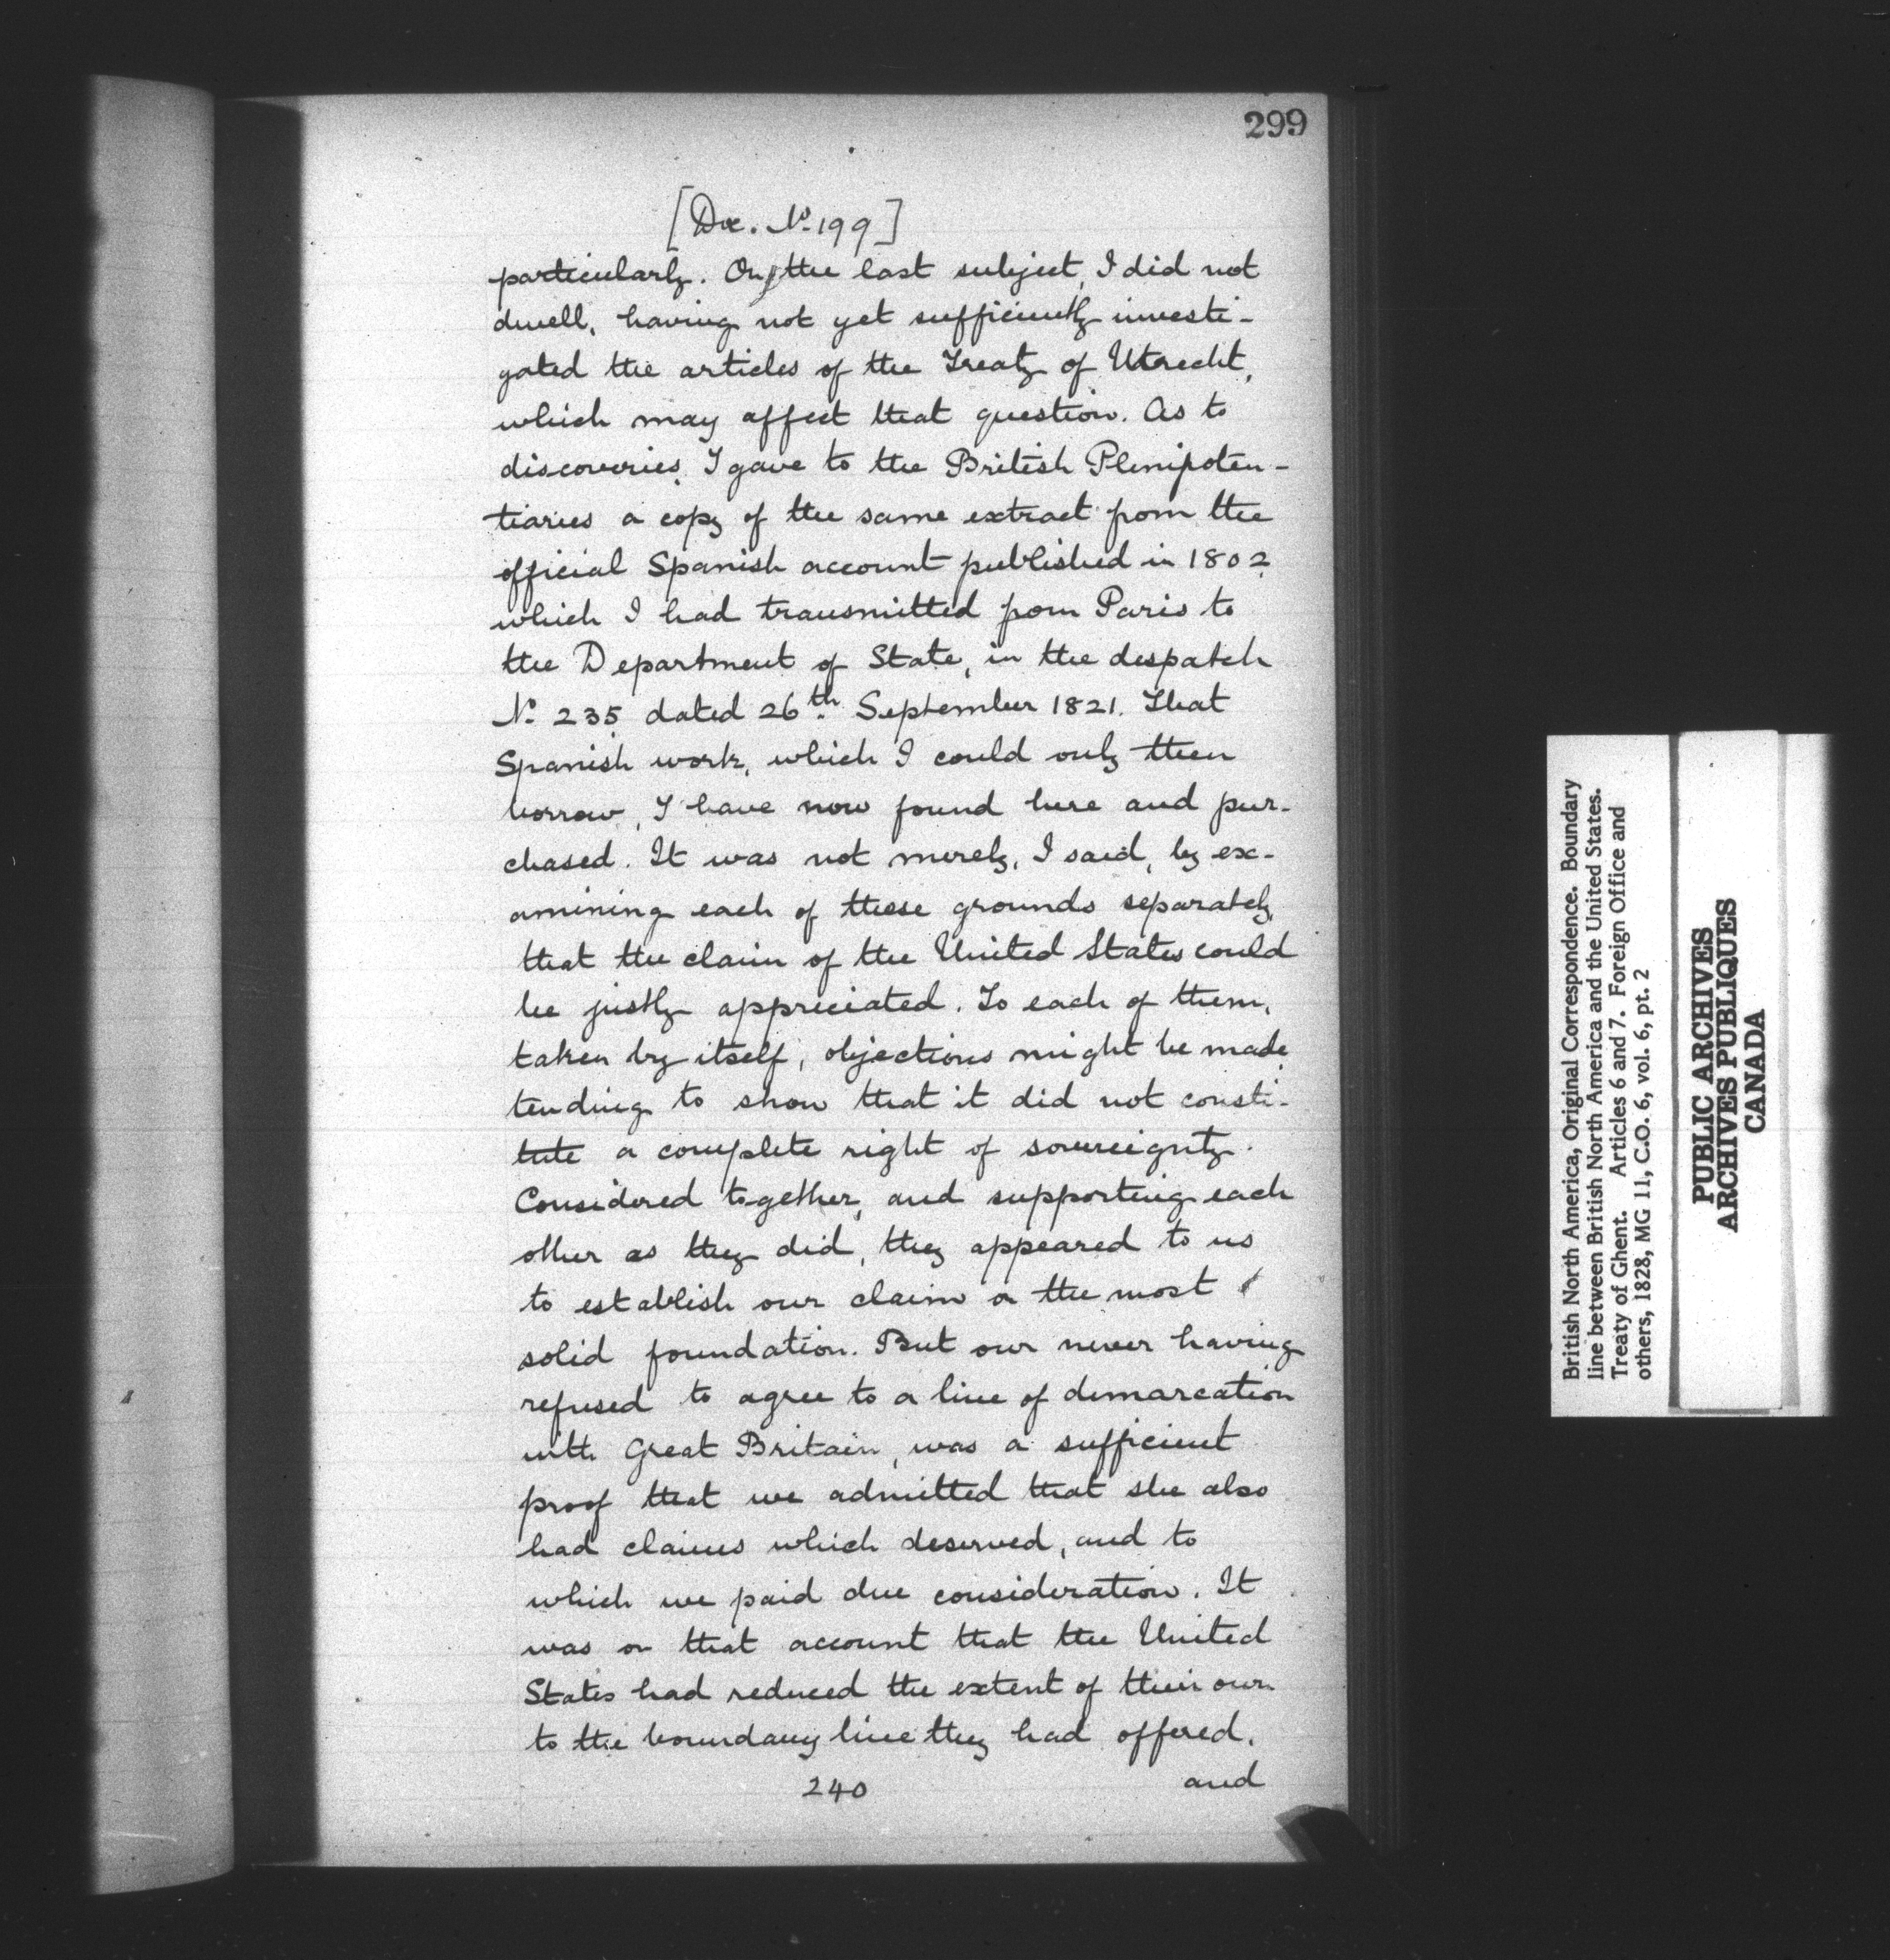 299
[Doc. No. 199]
particularly. On the last subject, I did not
dwell, having not yet sufficiently investi-
gated the articles of the Treaty of Utrecht,
which may affect that question. As to
discoveries, I gave to the British Plenipoten-
tiaries a copy of the same extract from the
official Spanish account published in 1802
which I had transmitted from Paris to
the Department of State, in the despatch
No. 235, dated 26th September 1821. That
Spanish work, which I could only then
borrow, I have now found here and pur-
chased. It was not merely, I said, by ex-
amining each of these grounds separately,
that the claim of the United States could
be justly appreciated. To each of them,
taken by itself, objections might be made
tending to show that it did not consti-
tute a complete right of sovereignty.
Considered together, and supporting each
other as they did, they appeared to us
to establish our claim on the most
solid foundation. But our never having
refused to agree to a line of demarcation
with Great Britain, was a sufficient
proof that we admitted that she also
had claims which deserved, and to
which we paid due consideration. It
was on that account that the United
States had reduced the extent of their own
to the boundary line they had offered,
240 and
British North America, Original Correspondence. Boundary
line between British North America and the United States.
Treaty of Ghent. Articles 6 and 7. Foreign Office and
others, 1828, MG 11, C.O. 6, vol. 6, pt. 2
PUBLIC ARCHIVES
ARCHIVES PUBLIQUES
CANADA